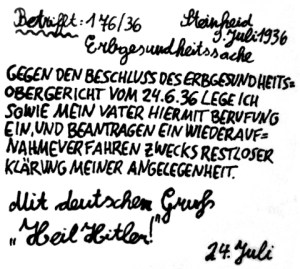 Betrifft: 176/36
Steinheid
9. Juli 1936
Erbgesundheitssache
GEGEN DEN BESCHLUSS DES ERBGESUNDHEITS-
OBERGERICHT VOM 24.6.36 LEGE ICH
SOWIE MEIN VATER HIERMIT BERUFUNG
EIN, UND BEANTRAGEN EIN WIEDERAUF-
NAHMEVERFAHREN ZWECKS RESTLOSER
KLÄRUNG MEINER ANGELEGENHEIT.
Mit deutschem Gruß
„Heil Hitler!"
24. Juli